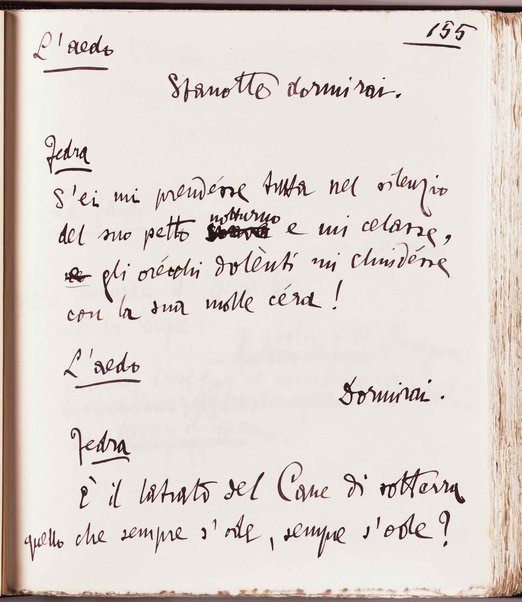 155
L'aedo
Stanotte dormirai.
Fedra
S'ei mi prendésse tutta nel silenzio
del suo petto notturno e mi celasse,
gli orécchi dolènti mi chiudésse
con la sua molle céra!
L'aedo
Dormirai.
Fedra
È il latrato del Cane di sotterra
quello che sempre s'ode, sempre s'ode?